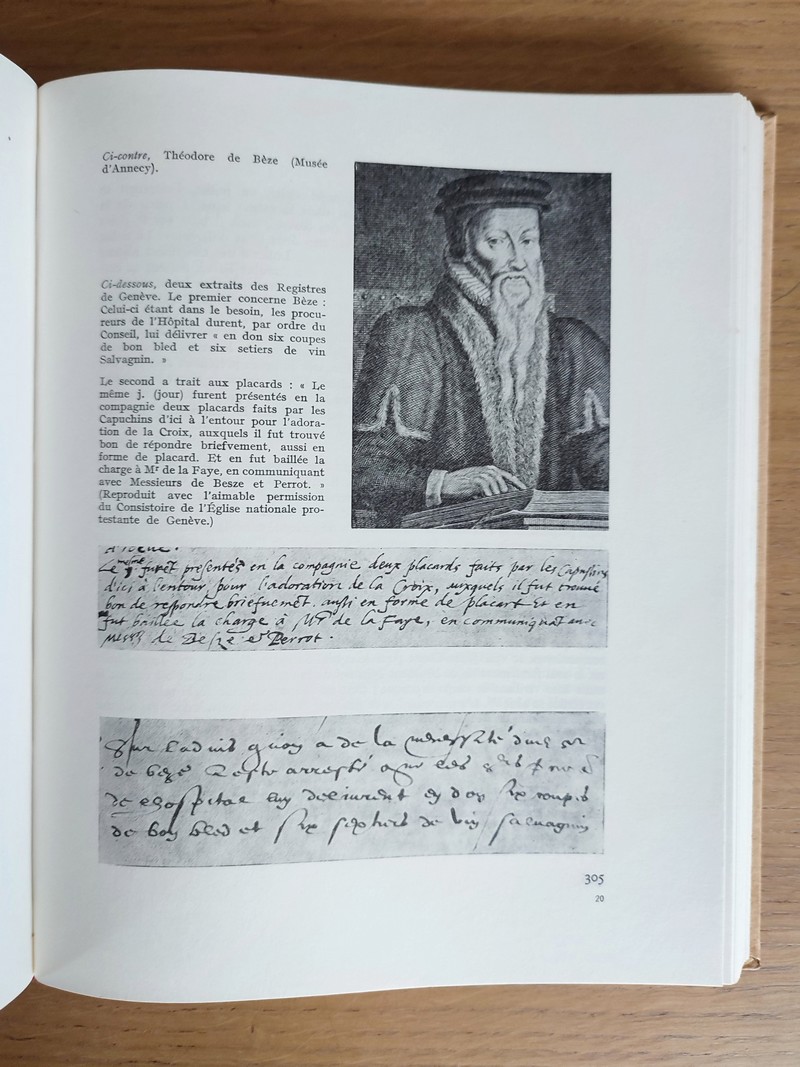 Ci-contre, Théodore de Bèze (Musée
d'Annecy).
Ci-dessous, deux extraits des Registres
de Genève. Le premier concerne Bèze :
Celui-ci étant dans le besoin, les procu-
reurs de l'Hôpital durent, par ordre du
Conseil, lui délivrer « en don six coupes
de bon bled et six setiers de vin
Salvagnin. »
Le second a trait aux placards : « Le
même j. (jour) furent présentés en la
compagnie deux placards faits par les
Capuchins d'ici à l'entour pour l'adora-
tion de la Croix, auxquels il fut trouvé
bon de répondre briefvement, aussi en
forme de placard. Et en fut baillée la
charge à Mr de la Faye, en communiquant
avec Messieurs de Besze et Perrot. »
(Reproduit avec l'aimable permission
du Consistoire de l'Église nationale pro-
testante de Genève.)
Le mesme j. furēt presentés en la compagnie deux placards faits par les Capuchins
d'ici à l'entour, pour l'adoration de la Croix, auxquels il fut trouué
bon de respondre briefuemēt. aussi en forme de placart et en
fut baillée la charge à Mr de la Faye, en communiquāt auec
de Besze et Perrot.
Sur l'aduis quon a de la necessité
de beze a este arresté que les
de lhospital luy deliurent en don six coupes
de bon bled et six septiers de vin saluagnin
305
20